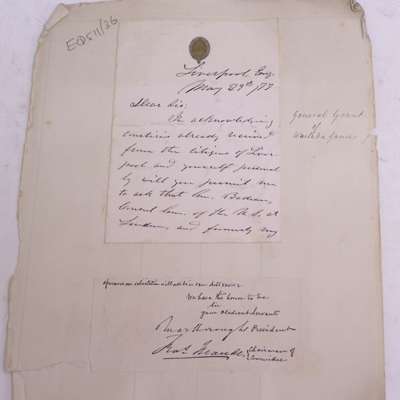 EQ511/26
Liverpool, Eng.
May 29th /77
Dear Sir:
In acknowledging
courtesies already received
from the Citizens of Liver-
pool and yourself
by will you permit me
to ask that Gen. Badeau,
Consul Gen. of the U.S. at
London, and formerly my
General Grant
of
United States
We have the honor to be
Sir
your obedient servants
Marlborough President
Chairman of
Committee